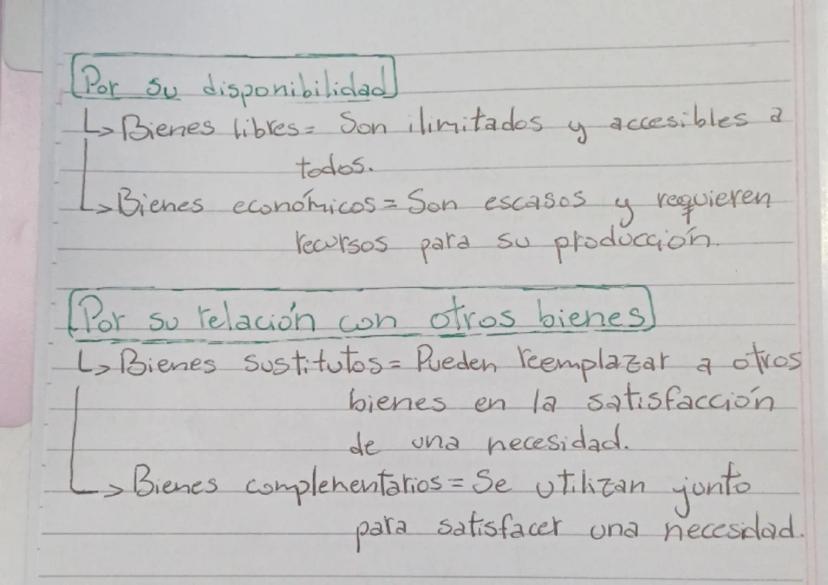 Por su disponibilidad
↳ Bienes libres = Son ilimitados y accesibles a
todos.
↳ Bienes económicos = Son escasos y requieren
recursos para su producción.
Por su relación con otros bienes
↳ Bienes sustitutos = Pueden reemplazar a otros
bienes en la satisfacción
de una necesidad.
↳ Bienes complementarios = Se utilizan junto
para satisfacer una necesidad.